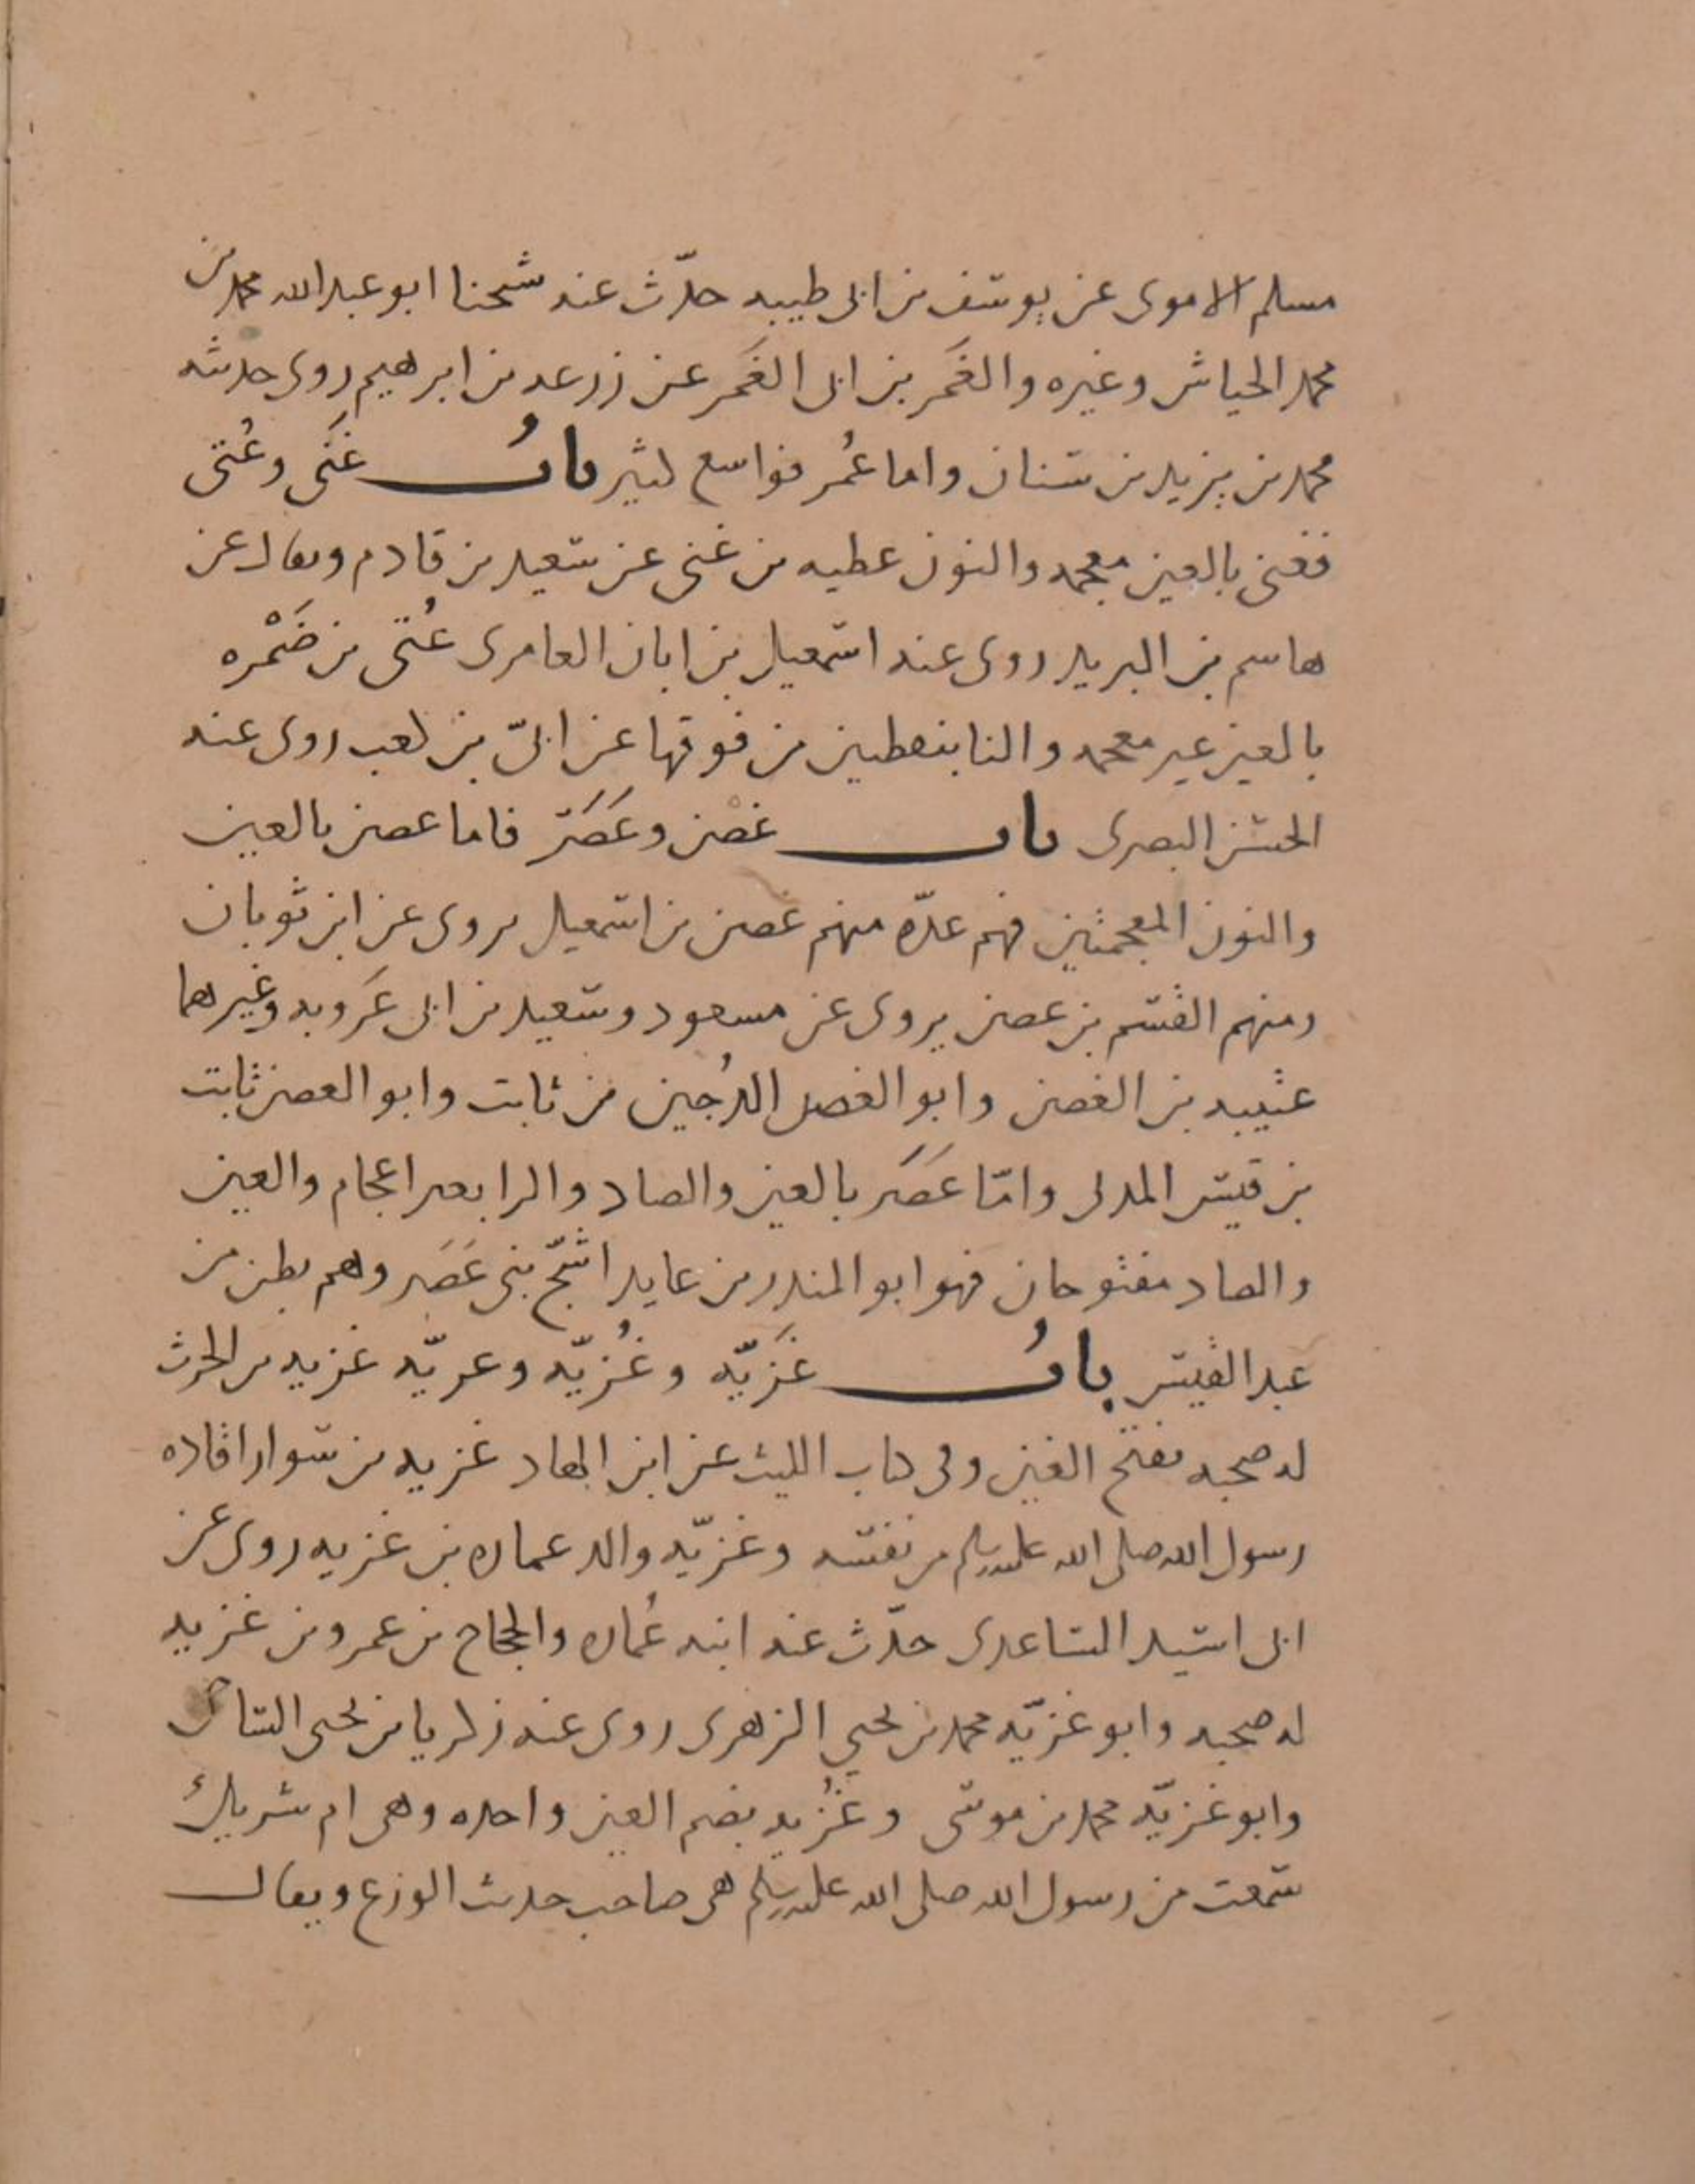 مسلم الاموى عن يوسف بن ابى طيبه حدّث عنه شيخنا ابو عبد الله محمد بن
محمد الحياش وغيره والغَمر بن ابى الغَمر عن زرعه بن ابرهيم روى حديثه
محمد بن يزيد بن سنان واما عُمر فواسع كثير بابُ غَنى وعُتى
فغنى بالغين معجمه والنون عطيه بن غنى عن سعيد بن قادم ويقال عن
هاسم بن البريد روى عنه اسمعيل بن ابان العامرى عُتى بن ضَمْره
بالعين غير معجمه والتا بنقطين من فوقها عن ابىّ بن كعب روى عنه
الحسن البصرى باب غصْن وعَصَر فاما غصن بالغين
والنون المعجمتين فهم عدّه منهم غصن بن اسمعيل يروى عن ابن ثوبان
ومنهم القسم بن غصن يروى عن مسعود وسعيد بن ابى عَروبه وغيرهما
عتيبه بن الغصن وابو الغصن الدُجين بن ثابت وابو الغصن ثابت
بن قيس المدنى وامّا عَصَر بالعين والصاد والرا بغير اعجام والعين
والصاد مفتوحان فهو ابو المنذر بن عايد اشجّ بنى عَصَر وهم بطن من
عبد القيس بابُ غَزيّه وغُزيّه وعريّه غزيه بن الحرث
له صحبه بفتح الغين وفى كتاب الليث عن ابن الهاد غزيه بن سوار اقاده
رسول الله صلى الله عليه وسلم من نفسه وغزيّه والد عماره بن غزيه روى عن
ابى اسيد الساعدى حدّث عنه ابنه عُماره والحجاج بن عمرو بن غزيه
له صحبه وابو غزيّه محمد بن يحيى الزهرى روى عنه زكريا بن يحيى
وابو غزيّه محمد بن موسى وغُزيه بضم الغين واحده وهى ام شريك
سمعت من رسول الله صلى الله عليه وسلم هى صاحب حديث الوزغ ويقال